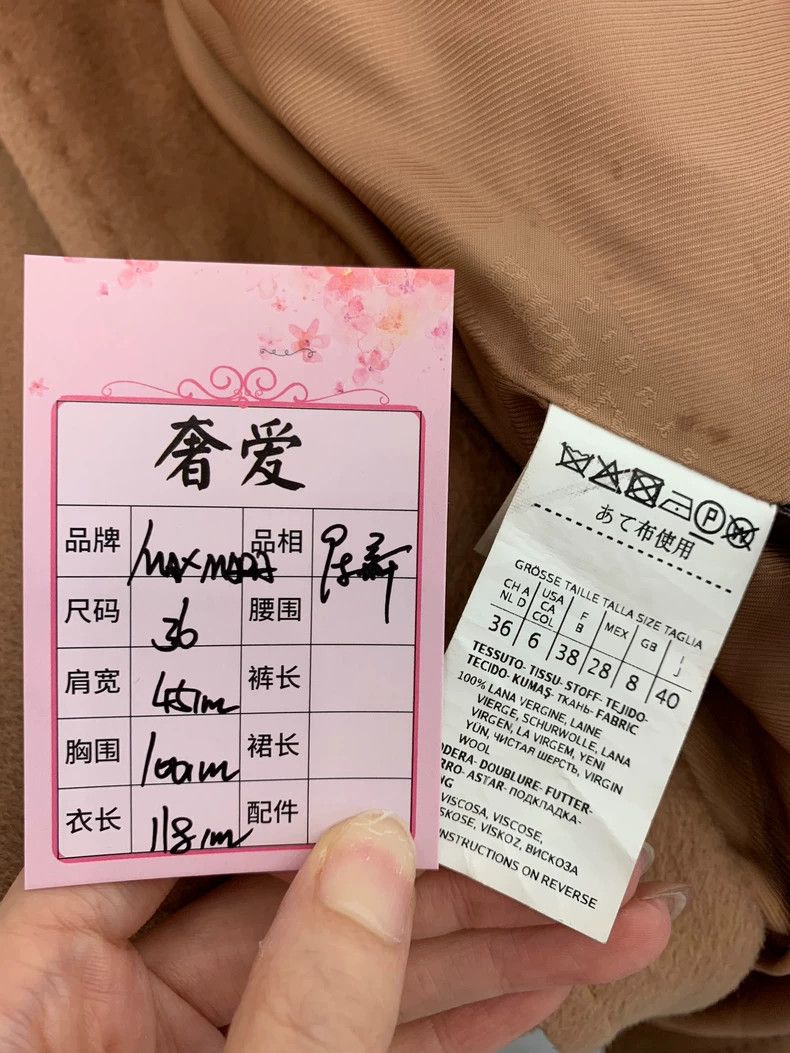 奢爱
品牌 MAX MARA 品相
尺码 36 腰围
肩宽 45cm 裤长
胸围 100cm 裙长
衣长 118cm 配件
P
あて布使用
GRÖSSE TAILLE TALLA SIZE TAGLIA
CH A NL D USA CA COL F B MEX GB I J
36 6 38 28 8 40
TESSUTO- TISSU- STOFF- TEJIDO-
TECIDO- KUMAŞ- ТКАНЬ- FABRIC
100% LANA VERGINE, LAINE
VIERGE, SCHURWOLLE, LANA
VIRGEN, LA VIRGEM, YENI
YÜN, ЧИСТАЯ ШЕРСТЬ, VIRGIN
WOOL
DERA- DOUBLURE- FUTTER-
RRO- ASTAR- ПОДКЛАДКА-
NG
VISCOSA, VISCOSE,
SKOSE, VISKOZ, ВИСКОЗА
INSTRUCTIONS ON REVERSE